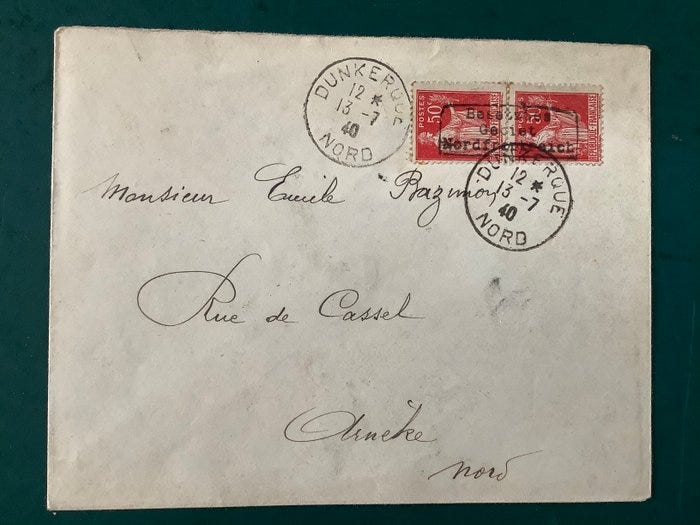 DUNKERQUE
12 *
13 -7
40
NORD
POSTES
50c
50c
RÉPUBLIQUE FRANÇAISE
Besetztes
Gebiet
Nordfrankreich
DUNKERQUE
12 *
13 -7
40
NORD
Monsieur Emile Bazimon
Rue de Cassel
Arneke
Nord